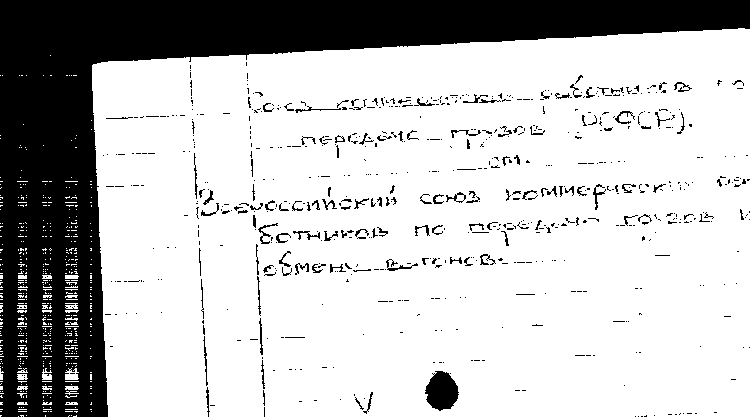 Союз коммерчески работников по
передаче грузов (РСФСР).
см.
Всероссийский союз коммерчески ра-
ботников по передачи грузов и
обмену вагонов.
V